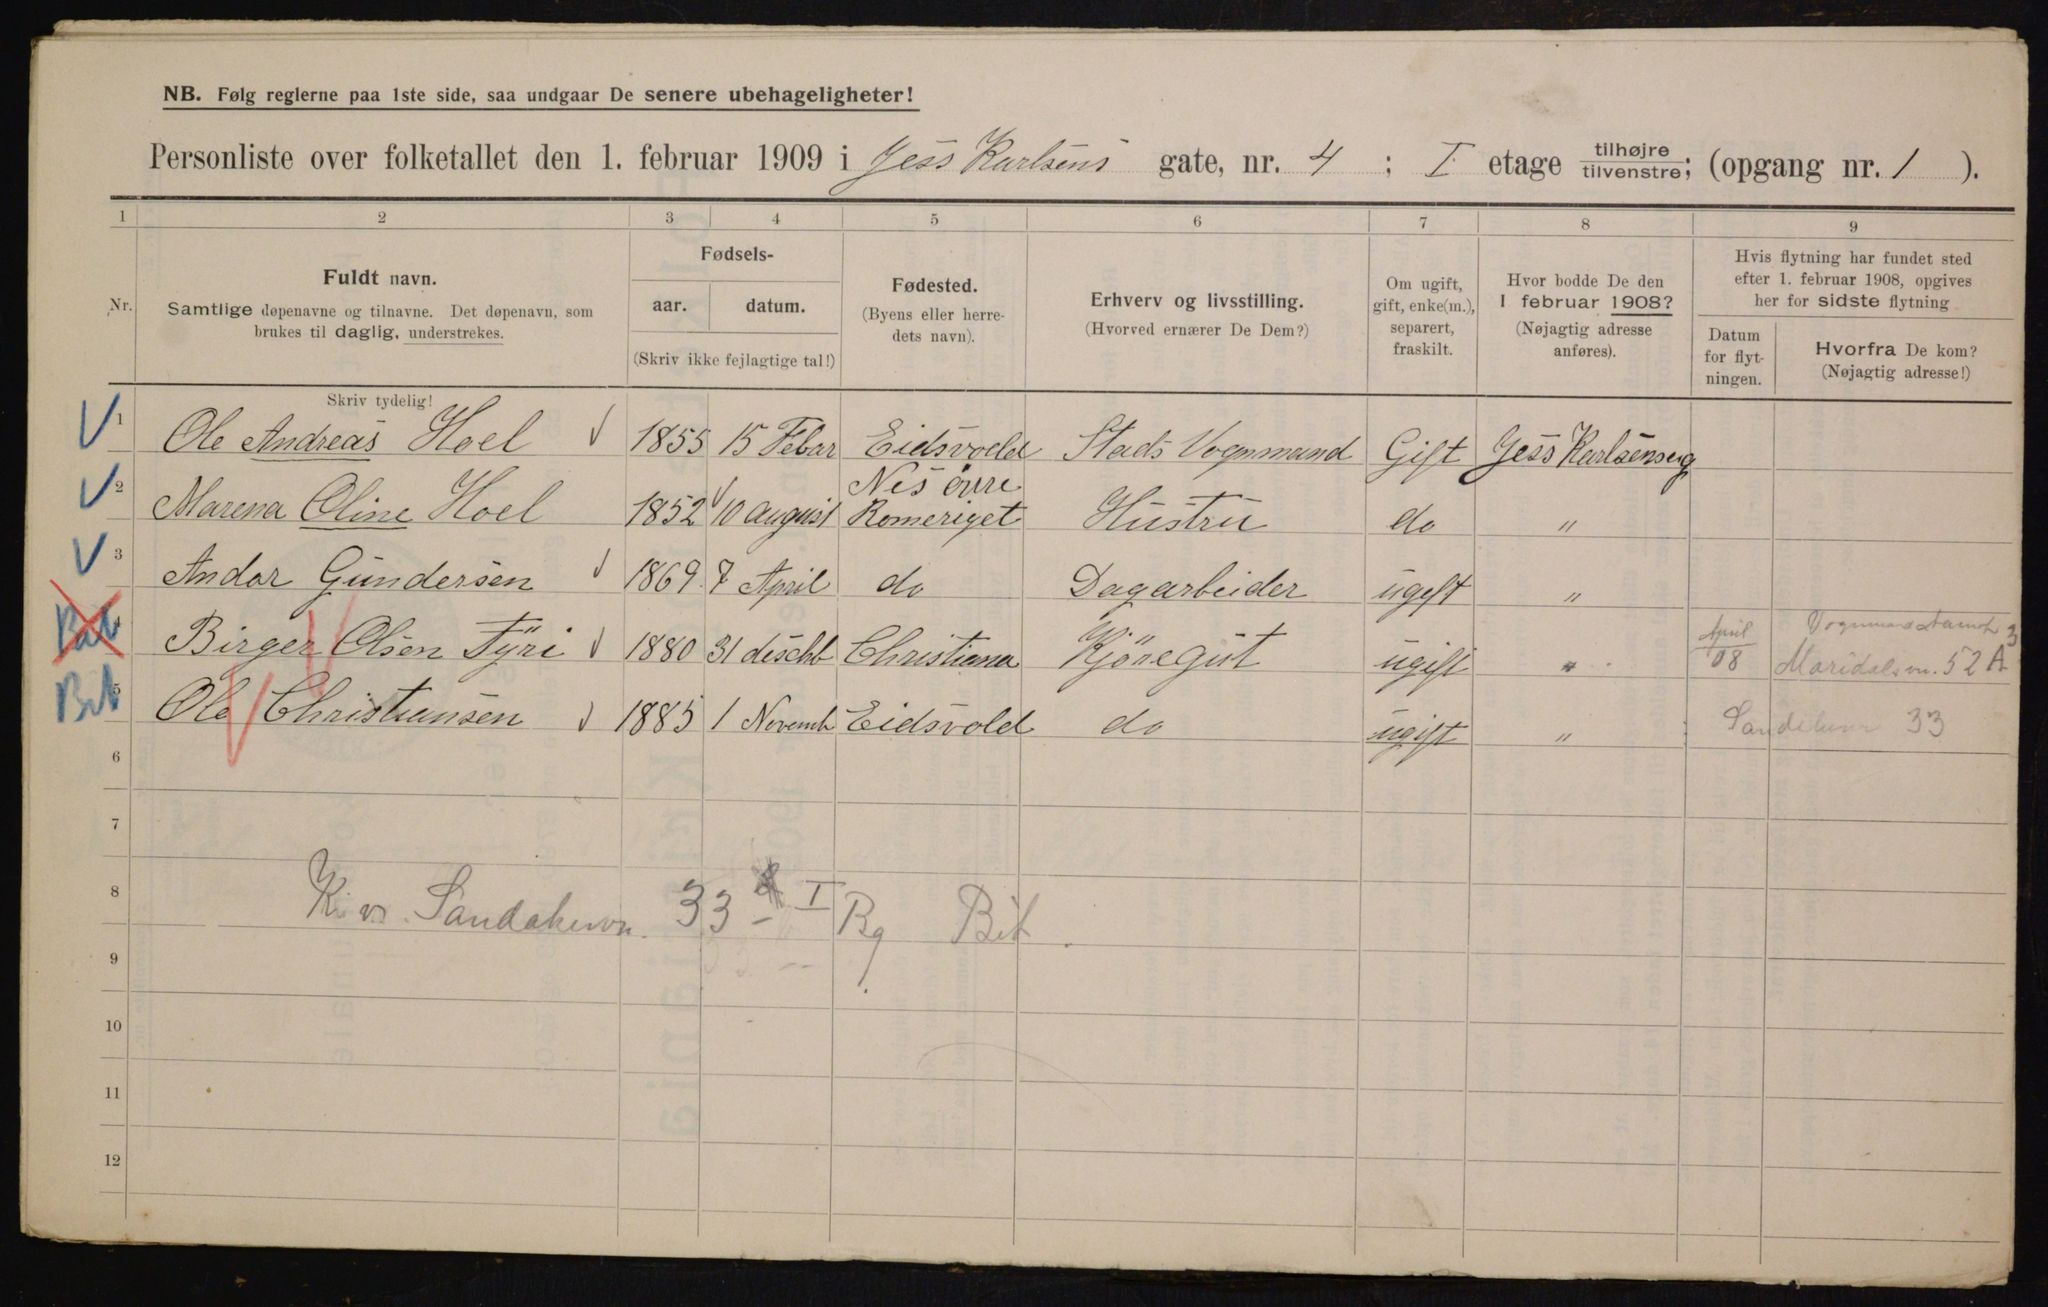 NB. Følg reglerne paa 1ste side, saa undgaar De senere ubehageligheter!
Personliste over folketallet den 1. februar 1909 i Jess Karlsens gate, nr. 4 ; I etage tilhøjre/tilvenstre; (opgang nr. 1 ).
1 2 3 4 5 6 7 8 9
Nr.
Fuldt navn.
Samtlige døpenavne og tilnavne. Det døpenavn, som
brukes til daglig, understrekes.
Skriv tydelig!
Fødsels-
aar. datum.
(Skriv ikke fejlagtige tal!)
Fødested.
(Byens eller herre-
dets navn).
Erhverv og livsstilling.
(Hvorved ernærer De Dem?)
Om ugift,
gift, enke(m.),
separert,
fraskilt.
Hvor bodde De den
1 februar 1908?
(Nøjagtig adresse
anføres).
Hvis flytning har fundet sted
efter 1. februar 1908, opgives
her for sidste flytning
Datum
for flyt-
ningen.
Hvorfra De kom?
(Nøjagtig adresse!)
1 Ole Andreas Hoel 1855 15 Febar Eidsvold Stads Vognmand Gift Jess Karlsensg
2 Marena Oline Hoel 1852 10 august Nes övre Romeriget Hustru do "
3 Andor Gundersen 1869 7 April do Dagarbeider ugift "
4 Birger Olsen Fyri 1880 31 deschb Christiana Kjöregut ugift " April 08 Maridalsvn. 52 A
Bit 5 Ole Christiansen 1885 1 Novemb Eidsvold do ugift " 33
6
7
8 Sandakervn. 33 I Bg Bit.
9
10
11
12